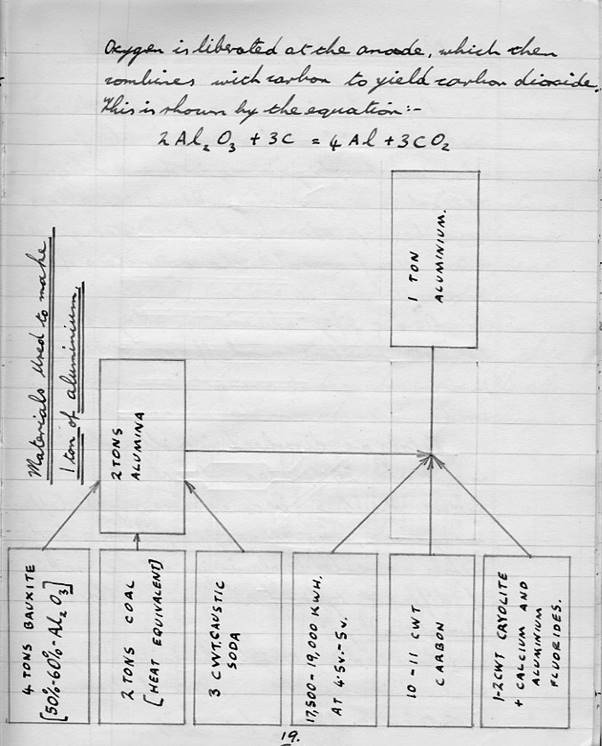 Oxygen is liberated at the anode, which then
combines with carbon to yield carbon dioxide.
This is shown by the equation:-
2Al₂O₃ + 3C = 4Al + 3CO₂
Materials used to make
1 ton of aluminium.
1 TON
ALUMINIUM.
2 TONS
ALUMINA
4 TONS BAUXITE
[50%-60%-Al₂O₃]
2 TONS COAL
[HEAT EQUIVALENT]
3 CWT.CAUSTIC
SODA
17,500-19,000 KWH.
AT 4·5V.-5V.
10-11 CWT
CARBON
1-2CWT CRYOLITE
+ CALCIUM AND
ALUMINIUM
FLUORIDES.
19.